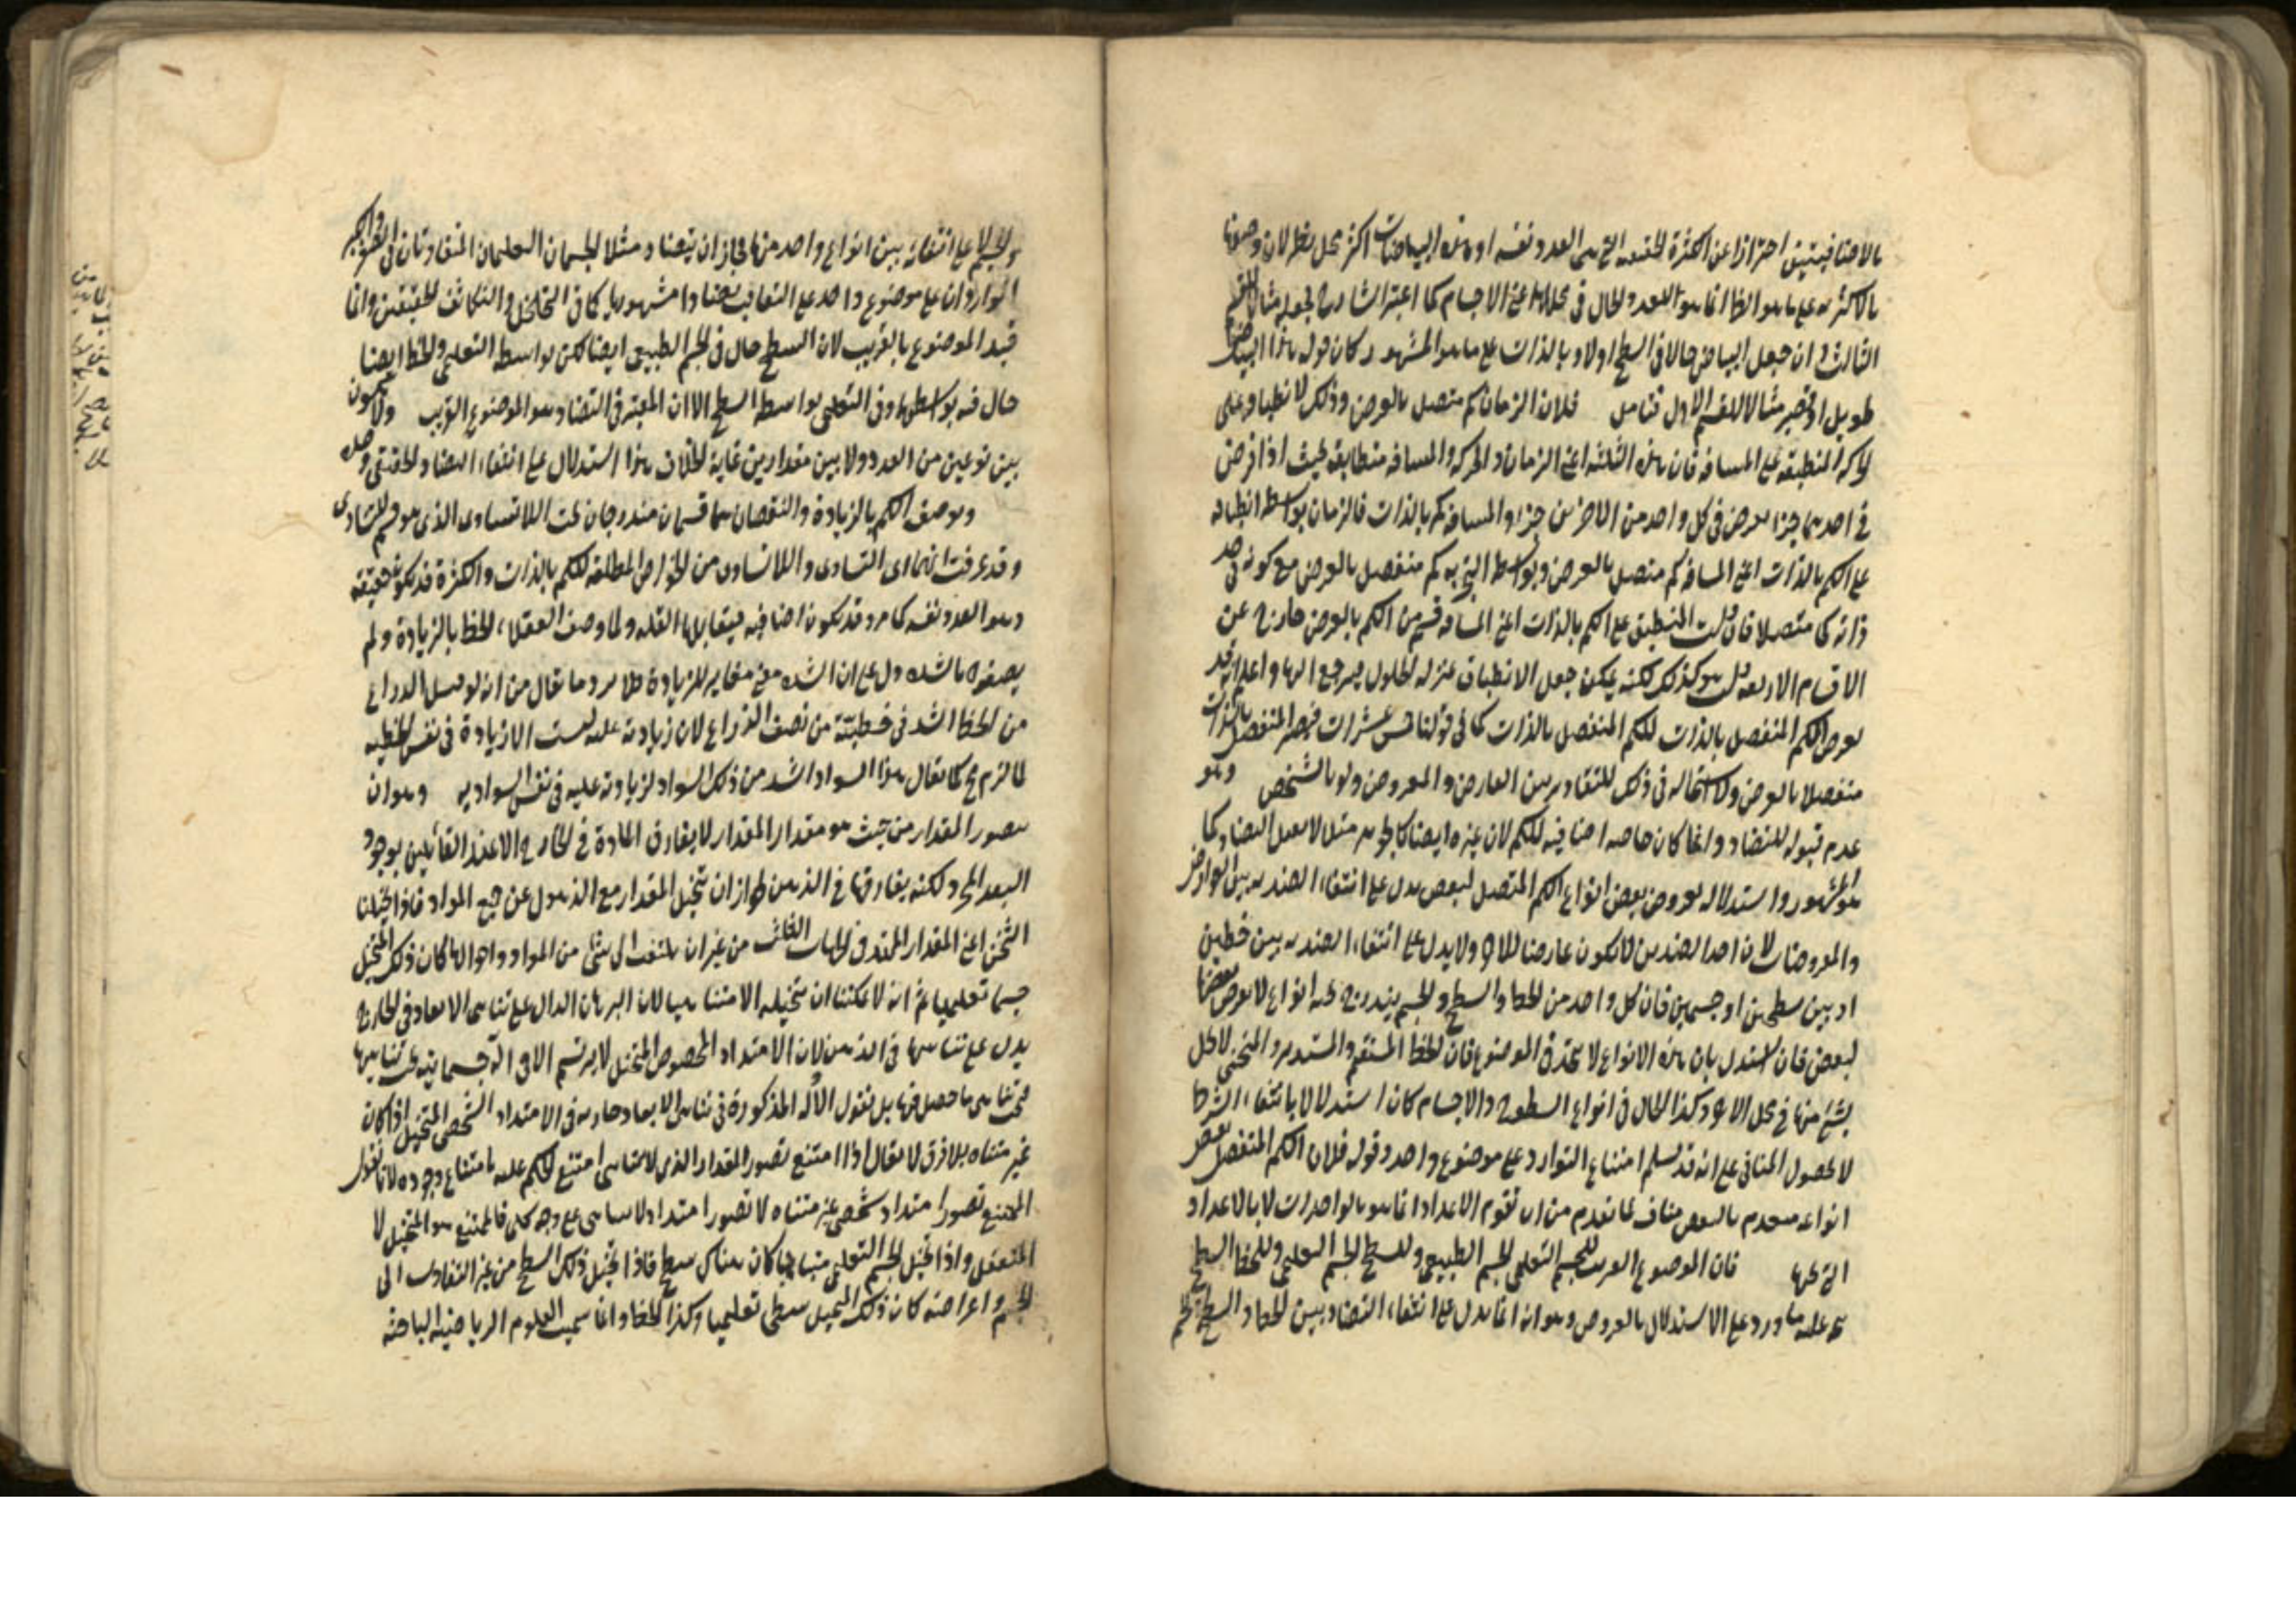 بالاضافيتين احترازا عن الكثرة الحقيقية التي هى العدد نفسه او هذه البياضات اكثر محل نظر لان وصفها
بالاكثرية على ما هو الظ انما هو العدد الحال في محلها اعنى الاجسام كما اعتبر الشارح لجعله مثالا للقسم
الثالث وان جعل البياض حالا فى السطح اولا وبالذات على ما هو المشهور كان قوله هذا البياض
طويل او قصير مثالا للقسم الاول فتامل فلان الزمان كم متصل بالعرض وذلك لانطباقه على
الحركة المنطبقة على المسافة فان هذه الثلثة اعنى الزمان والحركة والمسافة متطابقة بحيث اذا فرض
فى احدهما جزء يعرض فى كل واحد من الاخرين جزء والمسافة كم بالذات فالزمان بواسطة انطباقه
على الكم بالذات اعنى المسافة كم متصل بالعرض وبواسطة التجزية كم منفصل بالعرض مع كونه فى حد
ذاته كما متصلا فان قلت المنطبق على الكم بالذات اعنى المسافة قسم من الكم بالعرض خارج عن
الاقسام الاربعة قلت هو كذلك لكنه يمكن جعل الانطباق بمنزلة الحلول فيرجع اليها واعلم انه قد
يعرض الكم المنفصل بالذات للكم المنفصل بالذات كما فى قولنا خمس عشرات فيصير المنفصل بالذات
منفصلا بالعرض ولا استحالة فى ذلك للتغاير بين العارض والمعروض ولو بالشخص وهو
عدم قبوله للتضاد وانما كان خاصة اضافية للكم لان غيره ايضا كالجوهر مثلا لا يقبل التضاد كما
هو المشهور واستدلاله بعروض بعض انواع الكم المتصل لبعض يدل على انتفاء الضدية بين العوارض
والمعروضات لان احد الضدين لا يكون عارضا للاخر ولا يدل على انتفاء الضدية بين خطين
او بين سطحين او جسمين فان كل واحد من الخط والسطح والجسم يندرج تحته انواع لا يعرض بعضها
لبعض فان استدل بان هذه الانواع لا تتحد فى الموضوع فان الخط المستقيم والمستدير والمنحنى لا يحل
شئ منها فى محل الاخر وكذا الحال فى انواع السطوح والاجسام كان استدلالا بانتفاء الشرط
لا بحصول المنافى على انه قد تسلم امتناع التوارد على موضوع واحد وقوله فلان الكم المنفصل بعض
انواعه متقدم بالبعض مناف لما تقدم من ان تقوم الاعداد انما هو بالواحدات لا بالاعداد
التى تحتها فان الموضوع القريب للجسم التعليمى الجسم الطبيعى وللسطح الجسم التعليمى وللخط السطح
عليه ما ورد على الاستدلال بالعروض وهو انه انما يدل على انتفاء التضاد بين الخط والسطح والجسم
والجسم لا على انتفائه بين انواع واحد منها فجاز ان يتضاد مثلا الجسمان التعليميان المتفاوتان فى الصغر والكبر
المتواردان على موضوع واحد على التعاقب تضادا مشهوريا كما فى التخلخل والتكاثف الحقيقيين وانما
قيد الموضوع بالقريب لان السطح حال فى الجسم الطبيعى ايضا لكن بواسطة التعليمى والخط ايضا
حال فيه بواسطتهما وفى التعليمى بواسطة السطح الا ان المعتبر فى التضاد هو الموضوع القريب ولا يكون
بين نوعين من العدد ولا بين مقدارين غاية الخلاف هذا استدلال على انتفاء التضاد الحقيقى وحده
ويوصف الكم بالزيادة والنقصان هما قسمان مندرجان تحت اللاتساوى الذى هو قسيم للتساوى
وقد عرفت انهما اى التساوى واللاتساوى من الخواص المطلقة للكم بالذات والكثرة قد تكون حقيقة
وهو العدد نفسه كما مر وقد تكون اضافية فيقابلها القلة ولما وصف العقلاء الخط بالزيادة ولم
يصفوه بالشدة دل على ان الشدة معنى مغاير للزيادة ظاهر وما يقال من انه لو قيل الذراع
من الخط اشد فى خطيته من نصف الذراع لان زيادته عليه ليست الا زيادة فى نفس الخطية
لما لزم مح كما يقال هذا السواد اشد من ذلك السواد لزيادته عليه فى نفس السوادية وهو ان
تصور المقدار من حيث هو مقدار المقدار لا يفارق المادة فى الخارج الا عند القائلين بوجود
البعد المجرد لكنه يفارقها فى الذهن لجواز ان نتخيل المقدار مع الذهول عن جميع المواد فاذا تخيلنا
الثخن اعنى المقدار الممتد فى الجهات الثلث من غير ان يلتفت الى شئ من المواد واحوالها كان ذلك المتخيل
جسما تعليميا ثم انه لا يمكننا ان نتخيله الا متناهيا لان البرهان الدال على تناهى الابعاد فى الخارج
يدل على تناهيها فى الذهن لان الامتداد المخصوص المتخيل لا يرتسم الا فى الة جسمانية يجب تناهيها
فيجب تناهى ما حصل فيها بل نقول الادلة المذكورة فى تناهى الابعاد جارية فى الامتداد الشخصى المتخيل اذا كان
غير متناه بلا فرق لا يقال اذا امتنع تصور المقدار الذى لا يتناهى امتنع الحكم عليه بامتناع وجوده لانا نقول
الممتنع تصور امتداد شخصى غير متناه لا تصور امتداد لا يتناهى على وجه كلى فالممتنع هو المتخيل لا
المتعقل واذا تخيل الجسم التعليمى متناهيا كان هناك سطح فاذا تخيل ذلك السطح من غير التفات الى
الجسم واعراضه كان ذلك المتخيل سطحا تعليميا وكذا الخط وانما سميت العلوم الرياضية الباحثة